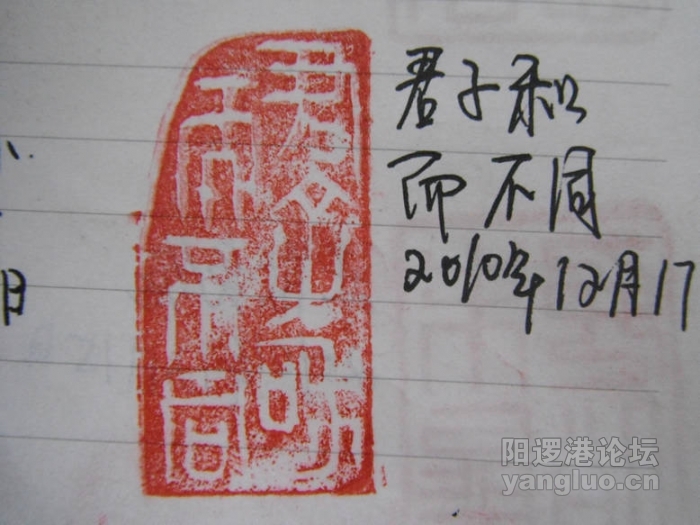 君子和
而不同
君子和
而不同
2010年12月17
日
阳逻港论坛
yangluo.cn